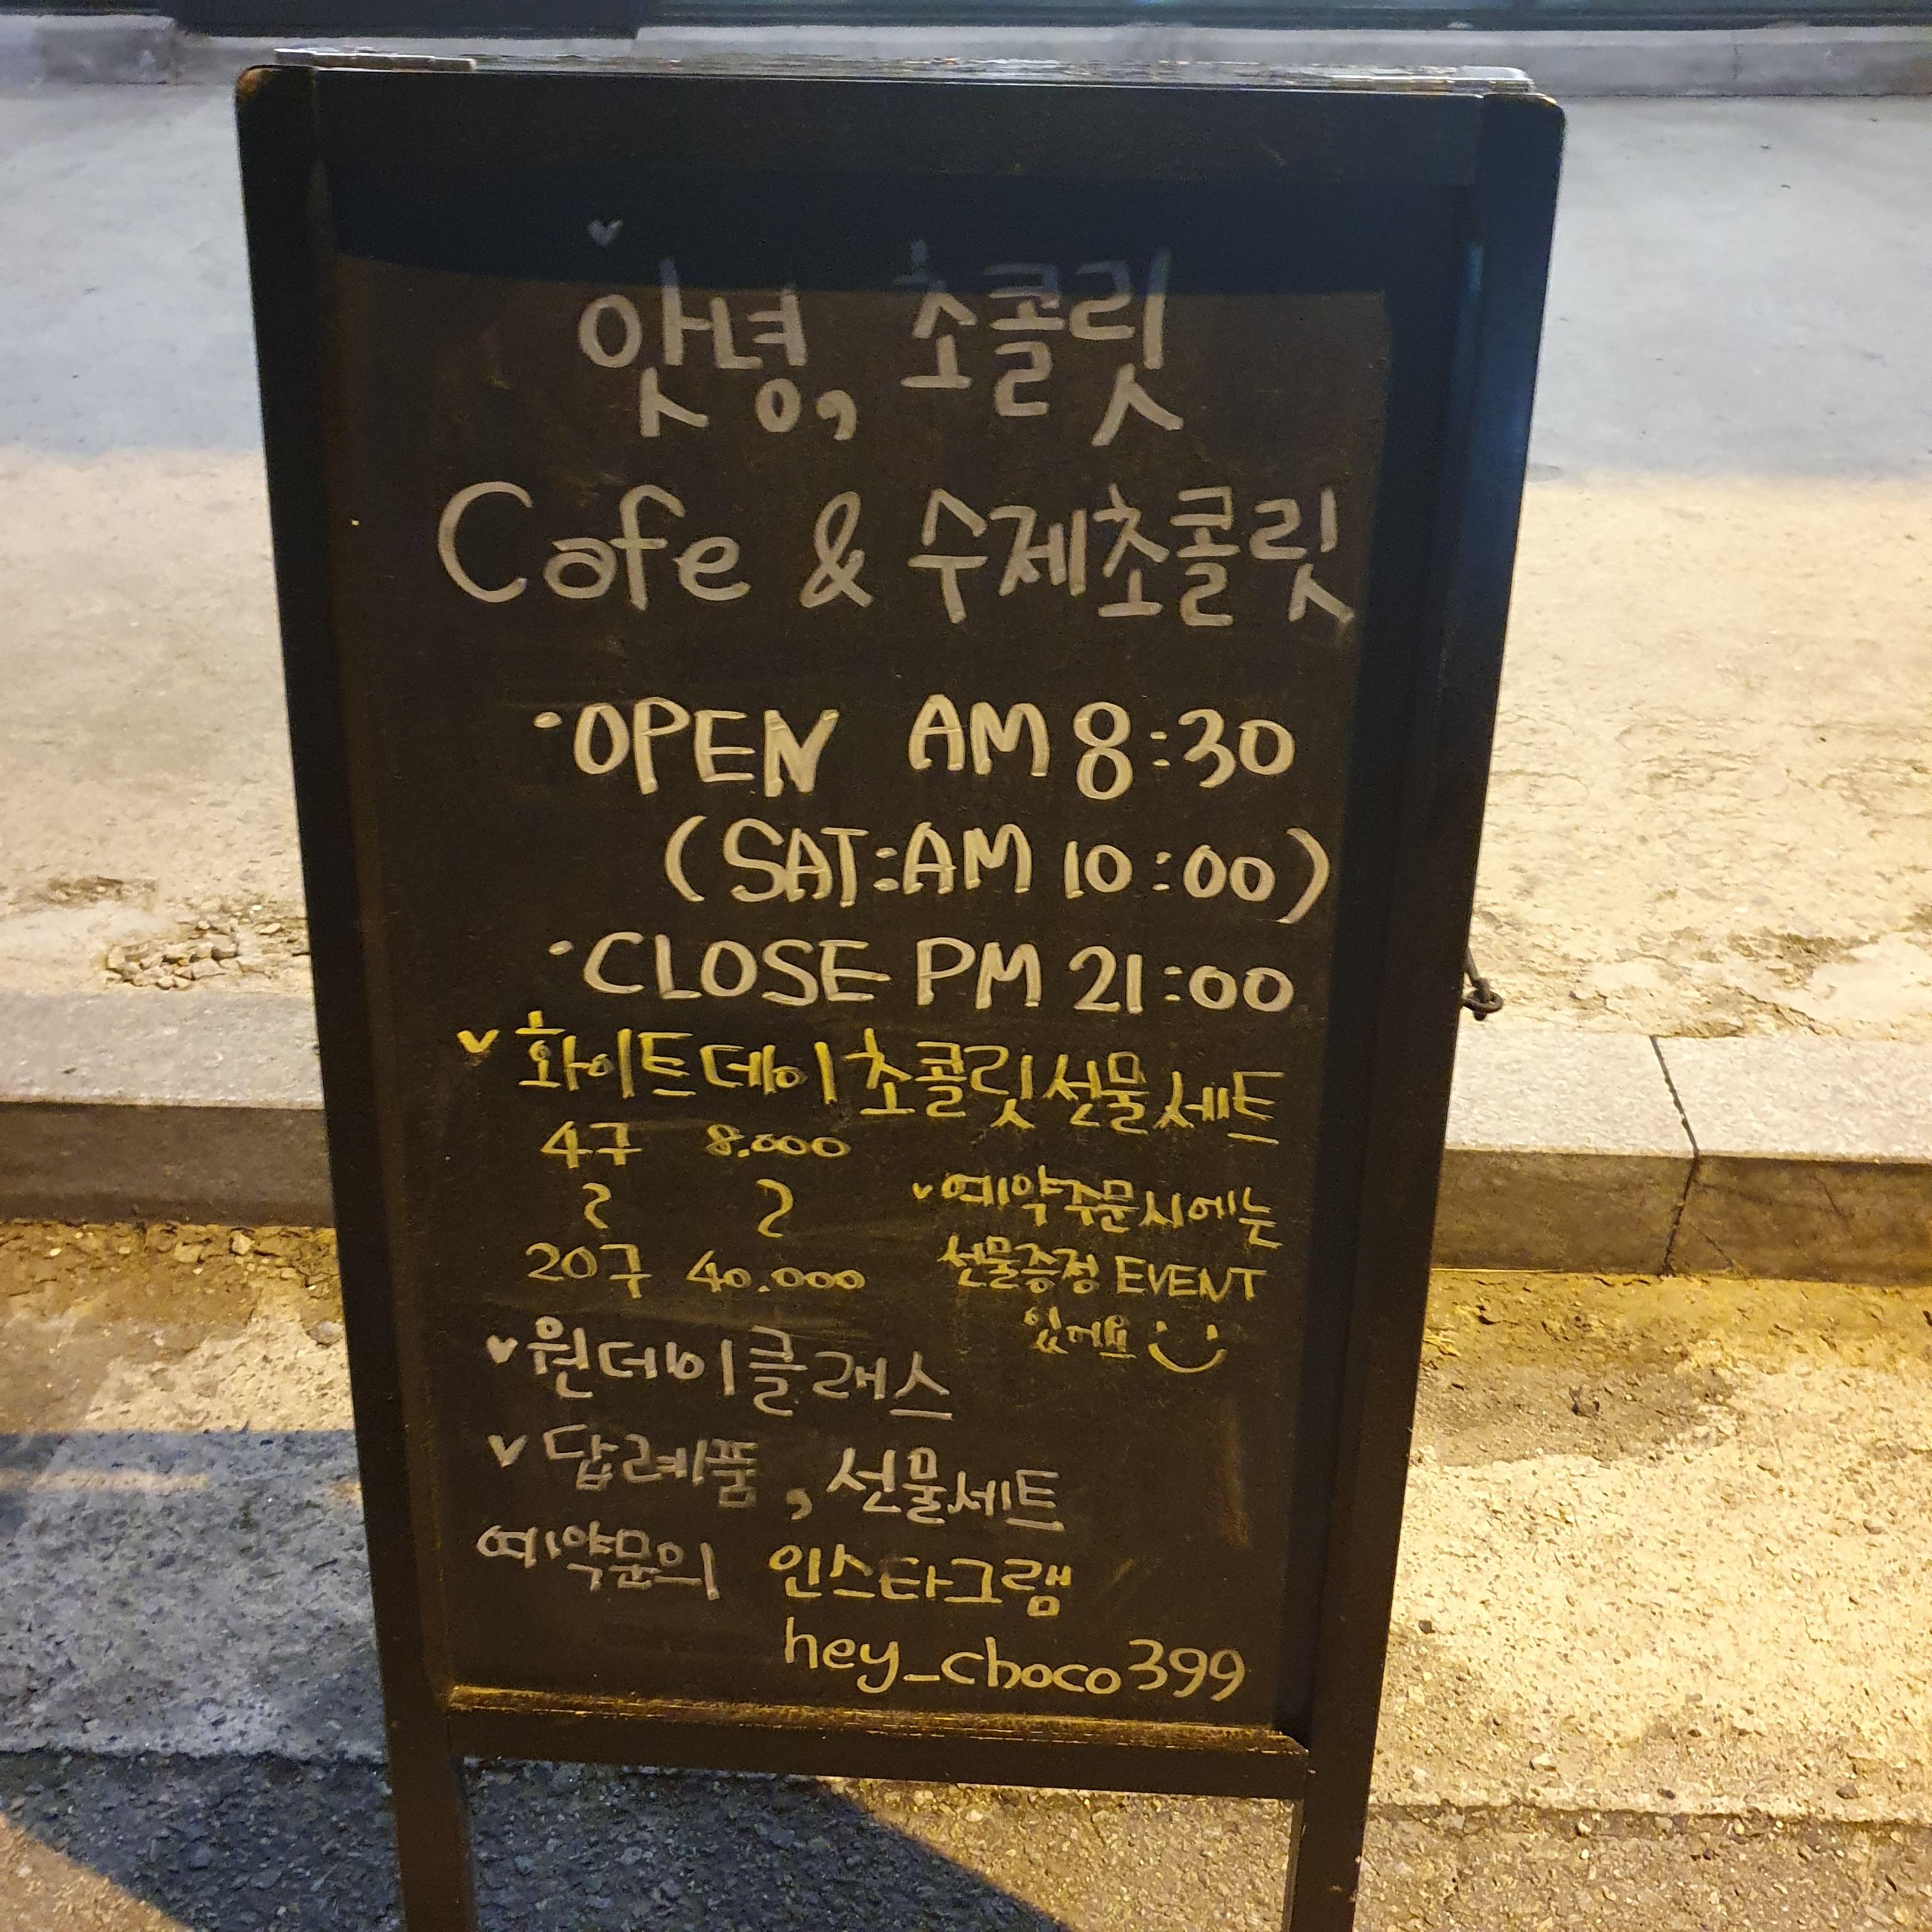 안녕, 초콜릿
Cafe & 수제초콜릿
·OPEN AM 8:30
(SAT:AM 10:00)
·CLOSE PM 21:00
화이트데이 초콜릿 선물세트
4구 8.000
~ ~
20구 40.000
예약주문시에는
선물증정 EVENT
있어요
원데이클래스
답례품, 선물세트
예약문의 인스타그램
hey_choco399